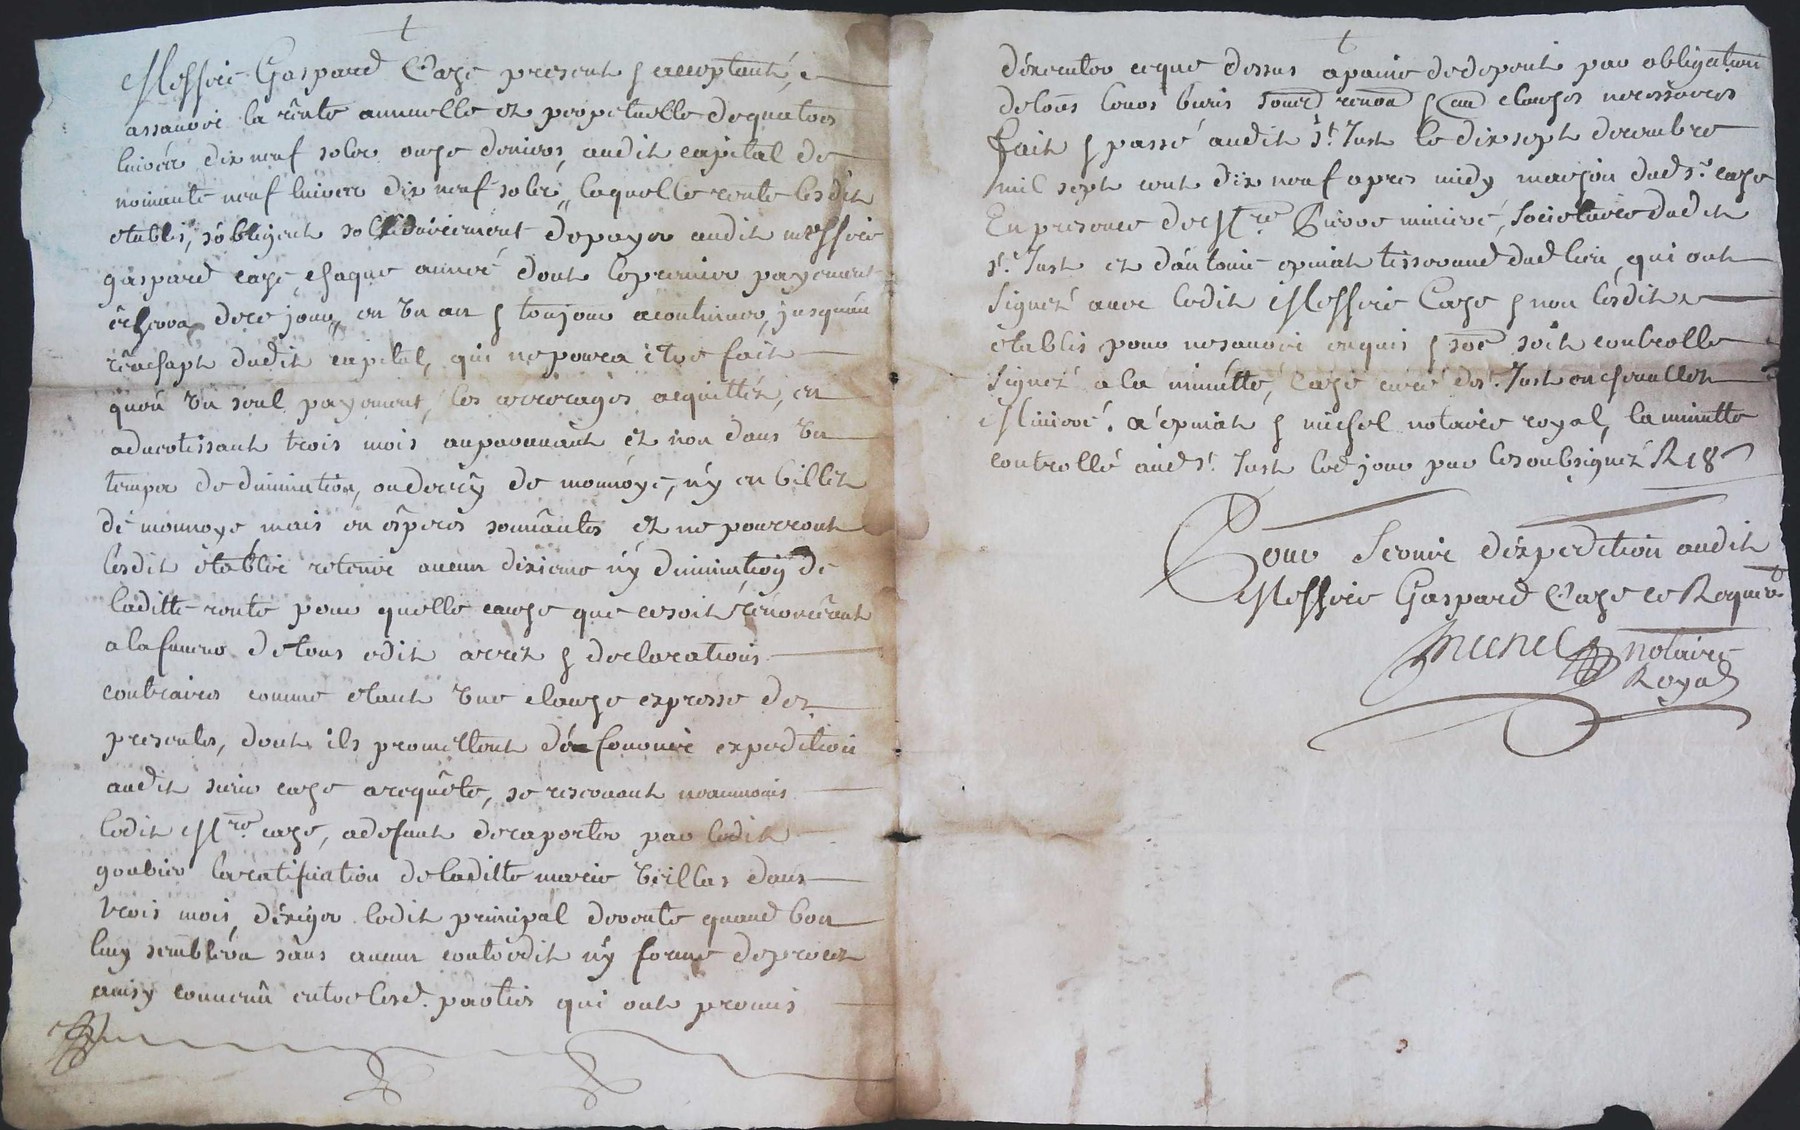 Messire Gaspard Caze present & acceptant,
assavoir la rente annuelle et perpetuelle de quatre
livres dix neuf sols onze deniers, audit capital de
nonante neuf livres dix neuf sols, laquelle rente lesdit
etablis, s'obligent solidairement de payer audit messire
gaspard caze, chaque année dont le premier payement
écherra de ce jour, en un an & toujour a continuer, jusqu'au
rachapt dudit capital, qui ne poura être fait
qu'en un seul payement, les arrerages acquittéz, en
advertissant trois mois auparavant et non dans un
temps de diminution, ou decry de monnoye, ny en billets
de monnoye mais en espèces sonnantes et ne pourront
lesdit établis retenir aucun dixieme ny diminution de
laditte rente pour quelle cauze que ce soit renonceant
a la faveur de tous edit arrez & declarations
contraires comme etant une clauze expresse dez
presentes, dont ils promettent dén fournir expedition
audit sieur caze a requête, se reservant neanmoins
ledit Mre caze, a defaut de raporter par ledit
goubier la ratification de laditte marie veillas dans
trois mois, déxiger ledit principal de rente quand bon
luy semblera sans aucun contredit ny forme de procez
ainsy convenû entre lesd. parties qui ont promis
déxecuter ce que dessus a paine de depent par obligation
de tous leurs biens soumd renond & au clauzes necessaires
fait & passé audit St. Just le dix sept decembre
mil sept cent dix neuf apres midy maizon dud sr. caze
En presence de Mre Pierre miniere, secretaire dudit
St. Just et d'antoine epinat tisserand dud lieu, qui ont
signez avec ledit Messire Caze & non lesdit
établis pour ne savoir enquis & soe soit controlle
signez a la minutte, Caze curé de St. Just en chevallet
Miniere. A épinat & michel notaire royal, la minutte
controllé aud St. Just led jour par le soubsignez R 18 s
Pour servir d'éxpedition audit
Messire Gaspard Caze ce Requerant
Michel notaire
Royal